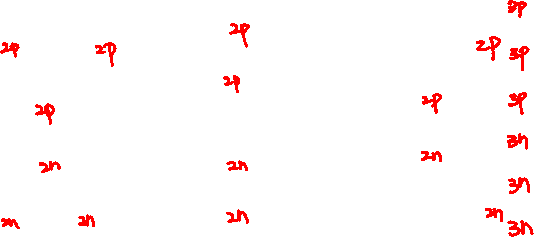 3p
2p
2p 2p 2p 3p
2p
2p 3p
2p
3n
2n
2n 2n
3n
2n 2n 2n 2n
3n